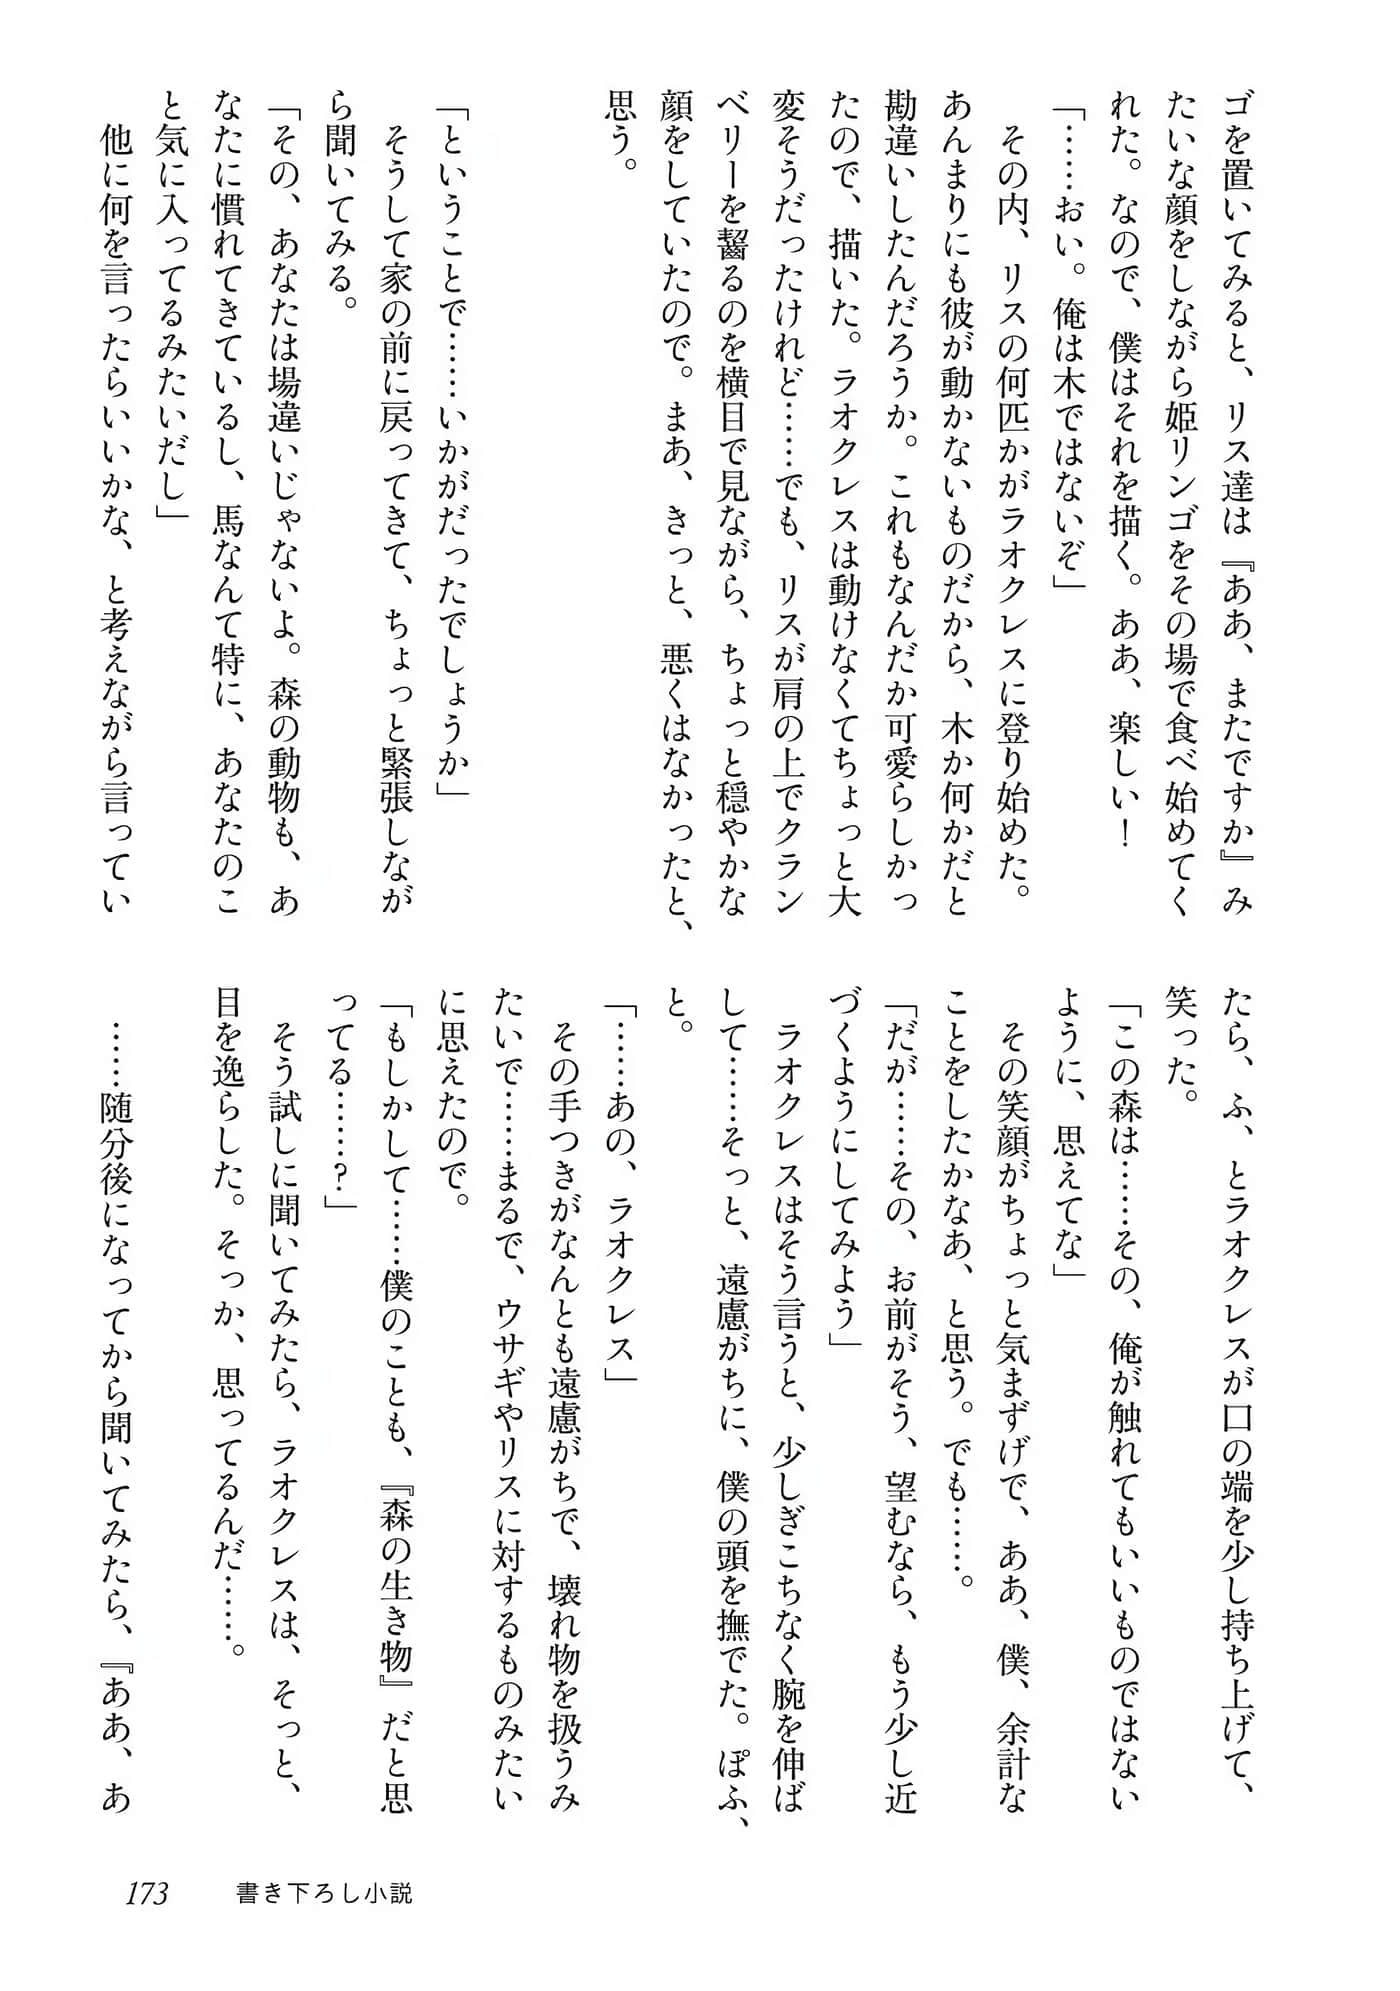 ゴを置いてみると、リス達は『ああ、またですか』み
たいな顔をしながら姫リンゴをその場で食べ始めてく
れた。なので、僕はそれを描く。ああ、楽しい！
「……おい。俺は木ではないぞ」
　その内、リスの何匹かがラオクレスに登り始めた。
あんまりにも彼が動かないものだから、木か何かだと
勘違いしたんだろうか。これもなんだか可愛らしかっ
たので、描いた。ラオクレスは動けなくてちょっと大
変そうだったけれど……でも、リスが肩の上でクラン
ベリーを齧るのを横目で見ながら、ちょっと穏やかな
顔をしていたので。まあ、きっと、悪くはなかったと、
思う。
「ということで……いかがだったでしょうか」
　そうして家の前に戻ってきて、ちょっと緊張しなが
ら聞いてみる。
「その、あなたは場違いじゃないよ。森の動物も、あ
なたに慣れてきているし、馬なんて特に、あなたのこ
と気に入ってるみたいだし」
　他に何を言ったらいいかな、と考えながら言ってい
たら、ふ、とラオクレスが口の端を少し持ち上げて、
笑った。
「この森は……その、俺が触れてもいいものではない
ように、思えてな」
　その笑顔がちょっと気まずげで、ああ、僕、余計な
ことをしたかなあ、と思う。でも……。
「だが……その、お前がそう、望むなら、もう少し近
づくようにしてみよう」
　ラオクレスはそう言うと、少しぎこちなく腕を伸ば
して……そっと、遠慮がちに、僕の頭を撫でた。ぽふ、
と。
「……あの、ラオクレス」
　その手つきがなんとも遠慮がちで、壊れ物を扱うみ
たいで……まるで、ウサギやリスに対するものみたい
に思えたので。
「もしかして……僕のことも、『森の生き物』だと思
ってる……？」
　そう試しに聞いてみたら、ラオクレスは、そっと、
目を逸らした。そっか、思ってるんだ……。
　……随分後になってから聞いてみたら、『ああ、あ
173　書き下ろし小説